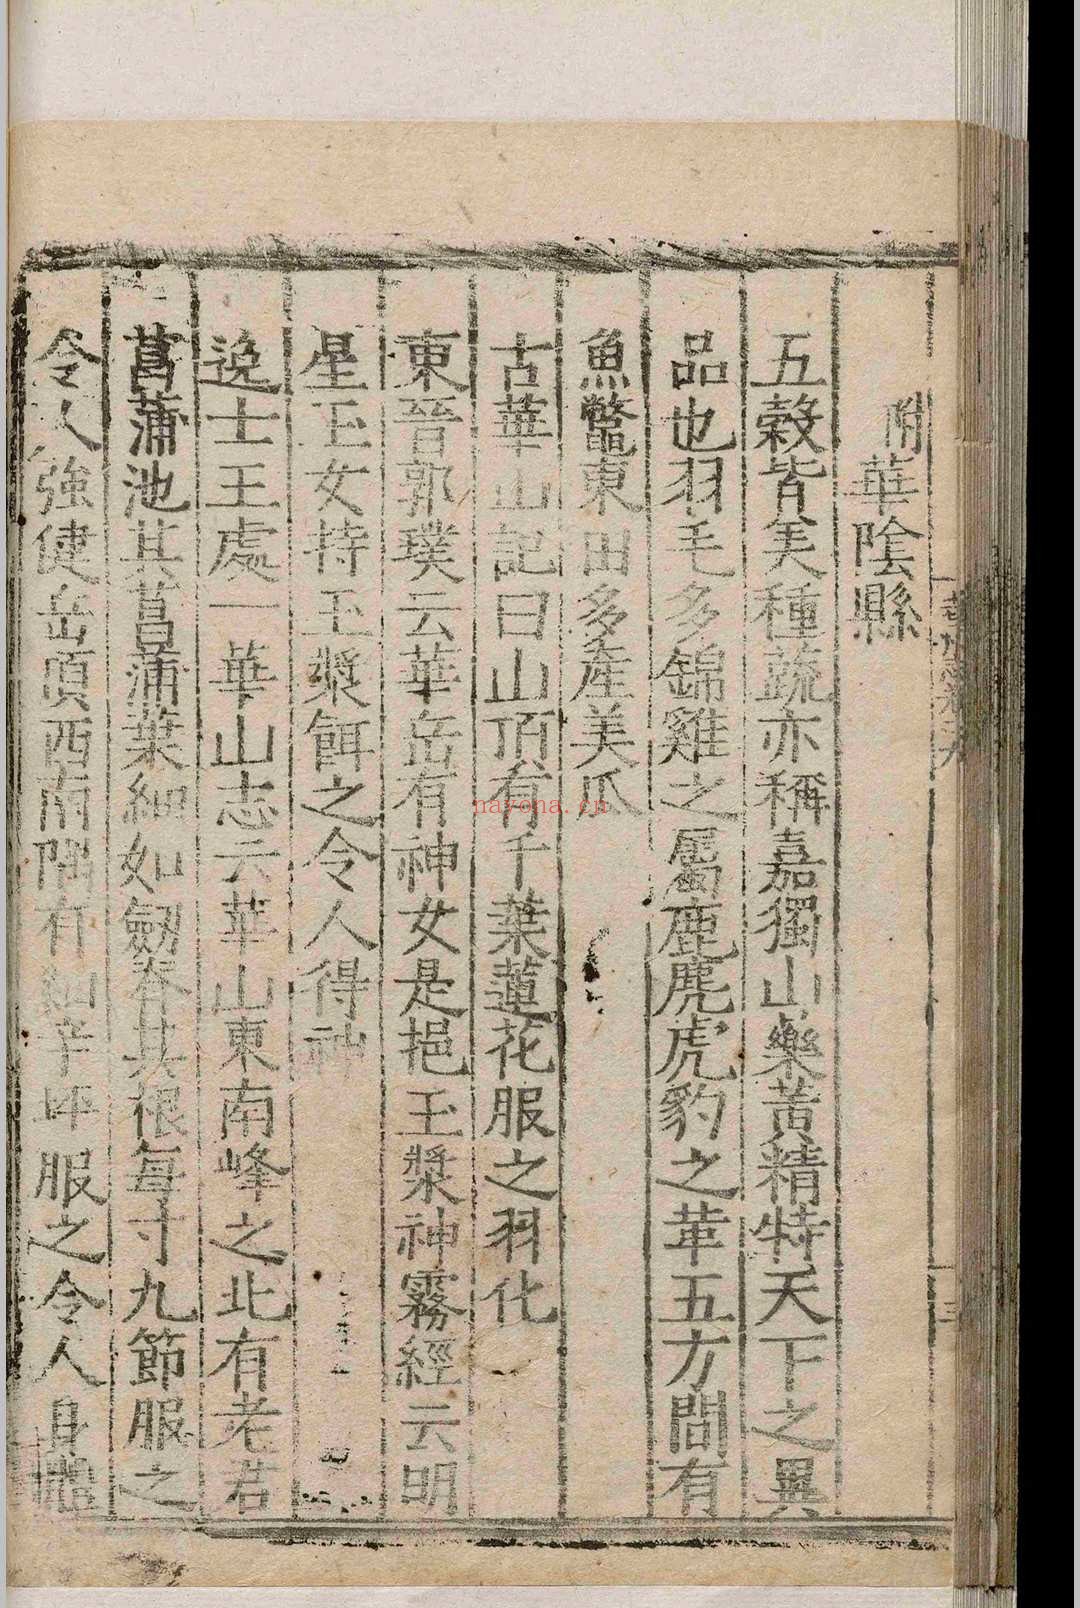 附華陰縣
五穀皆美種蔬亦稱嘉獨山藥黃精特天下之異
品也羽毛多錦雞之屬鹿麂虎豹之革五方間有
魚鱉東田多產美瓜
古華山記曰山頂有千葉蓮花服之羽化
東晉郭璞云華岳有神女是挹玉漿神霧經云明
星玉女持玉漿餌之令人得神
逸士王處一華山志云華山東南峰之北有老君
菖蒲池其菖蒲葉細如劒脊其根每寸九節服之
令人強健岳頂西南隅有細辛即服之令人身體
nayona.cn